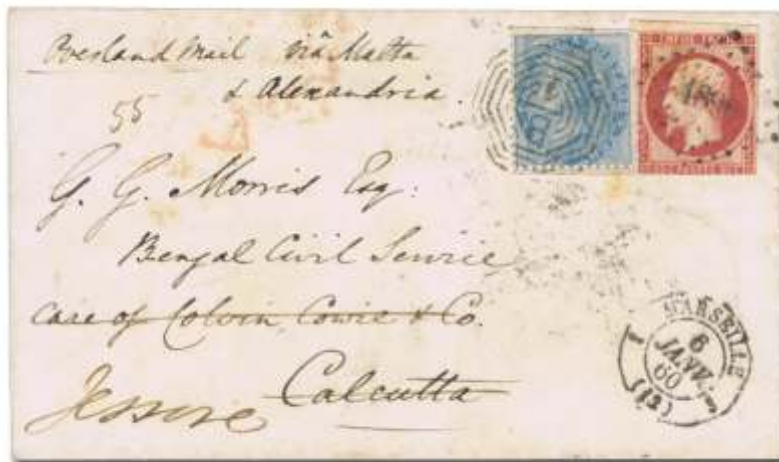 Overland Mail viâ Malta
& Alexandria.
55
G. G. Morris Esq:
Bengal Civil Service
care of Colvin Cowie & Co.
Calcutta
Jessore
B
MARSEILLE
6
JANV.
60
(12)